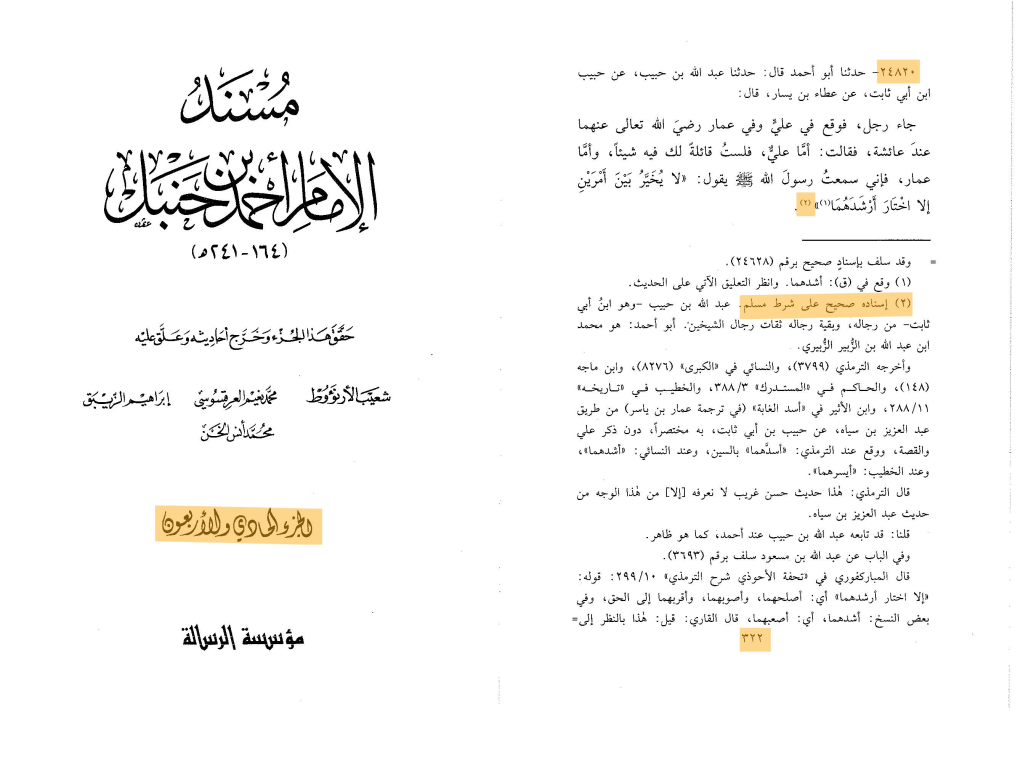 مُسْنَدُ
الإمَامِ أَحْمَدَ بْنِ حَنْبَلٍ
(١٦٤ - ٢٤١ هـ)
حَقَّقَ هٰذا الجُزء وَخَرَّجَ أحَاديثه وَعَلَّقَ عَليْه
شعَيبُ الأرنؤوط محمّد نعيم العرقسُوسيّ إبراهيم الزّيبَق
محمَّد أنس الخَنّ
الجزء الحادي والأربعون
مؤسسة الرسالة
٢٤٨٢٠- حدثنا أبو أحمد قال: حدثنا عبد الله بن حبيب، عن حبيب
ابن أبي ثابت، عن عطاء بن يسار، قال:
جاء رجل، فوقع في عليٍّ وفي عمار رضيَ الله تعالى عنهما
عندَ عائشة، فقالت: أمَّا عليٌّ، فلستُ قائلةً لك فيه شيئاً، وأمَّا
عمار، فإني سمعتُ رسولَ الله ﷺ يقول: «لا يُخَيَّرُ بَيْنَ أَمْرَيْنِ
إلا اخْتَارَ أَرْشَدَهُمَا(١)»(٢).
= وقد سلف بإسنادٍ صحيح برقم (٢٤٦٢٨).
(١) وقع في (ق): أشدهما. وانظر التعليق الآتي على الحديث.
(٢) إسناده صحيح على شرط مسلم. عبد الله بن حبيب -وهو ابنُ أبي
ثابت- من رجاله، وبقية رجاله ثقات رجال الشيخين. أبو أحمد: هو محمد
ابن عبد الله بن الزُّبير الزُّبيري.
وأخرجه الترمذي (٣٧٩٩)، والنسائي في «الكبرى» (٨٢٧٦)، وابن ماجه
(١٤٨)، والحاكم في «المستدرك» ٣٨٨/٣، والخطيب في «تاريخه»
٢٨٨/١١، وابن الأثير في «أسد الغابة» (في ترجمة عمار بن ياسر) من طريق
عبد العزيز بن سياه، عن حبيب بن أبي ثابت، به مختصراً، دون ذكر علي
والقصة، ووقع عند الترمذي: «أسدَّهما» بالسين، وعند النسائي: «أشدهما»،
وعند الخطيب: «أيسرهما».
قال الترمذي: هٰذا حديث حسن غريب لا نعرفه [إلا] من هٰذا الوجه من
حديث عبد العزيز بن سياه.
قلنا: قد تابعه عبد الله بن حبيب عند أحمد، كما هو ظاهر.
وفي الباب عن عبد الله بن مسعود سلف برقم (٣٦٩٣).
قال المباركفوري في «تحفة الأحوذي شرح الترمذي» ٢٩٩/١٠: قوله:
«إلا اختار أرشدهما» أي: أصلحهما، وأصوبهما، وأقربهما إلى الحق، وفي
بعض النسخ: أشدهما، أي: أصعبهما، قال القاري: قيل: هٰذا بالنظر إلى=
٣٢٢